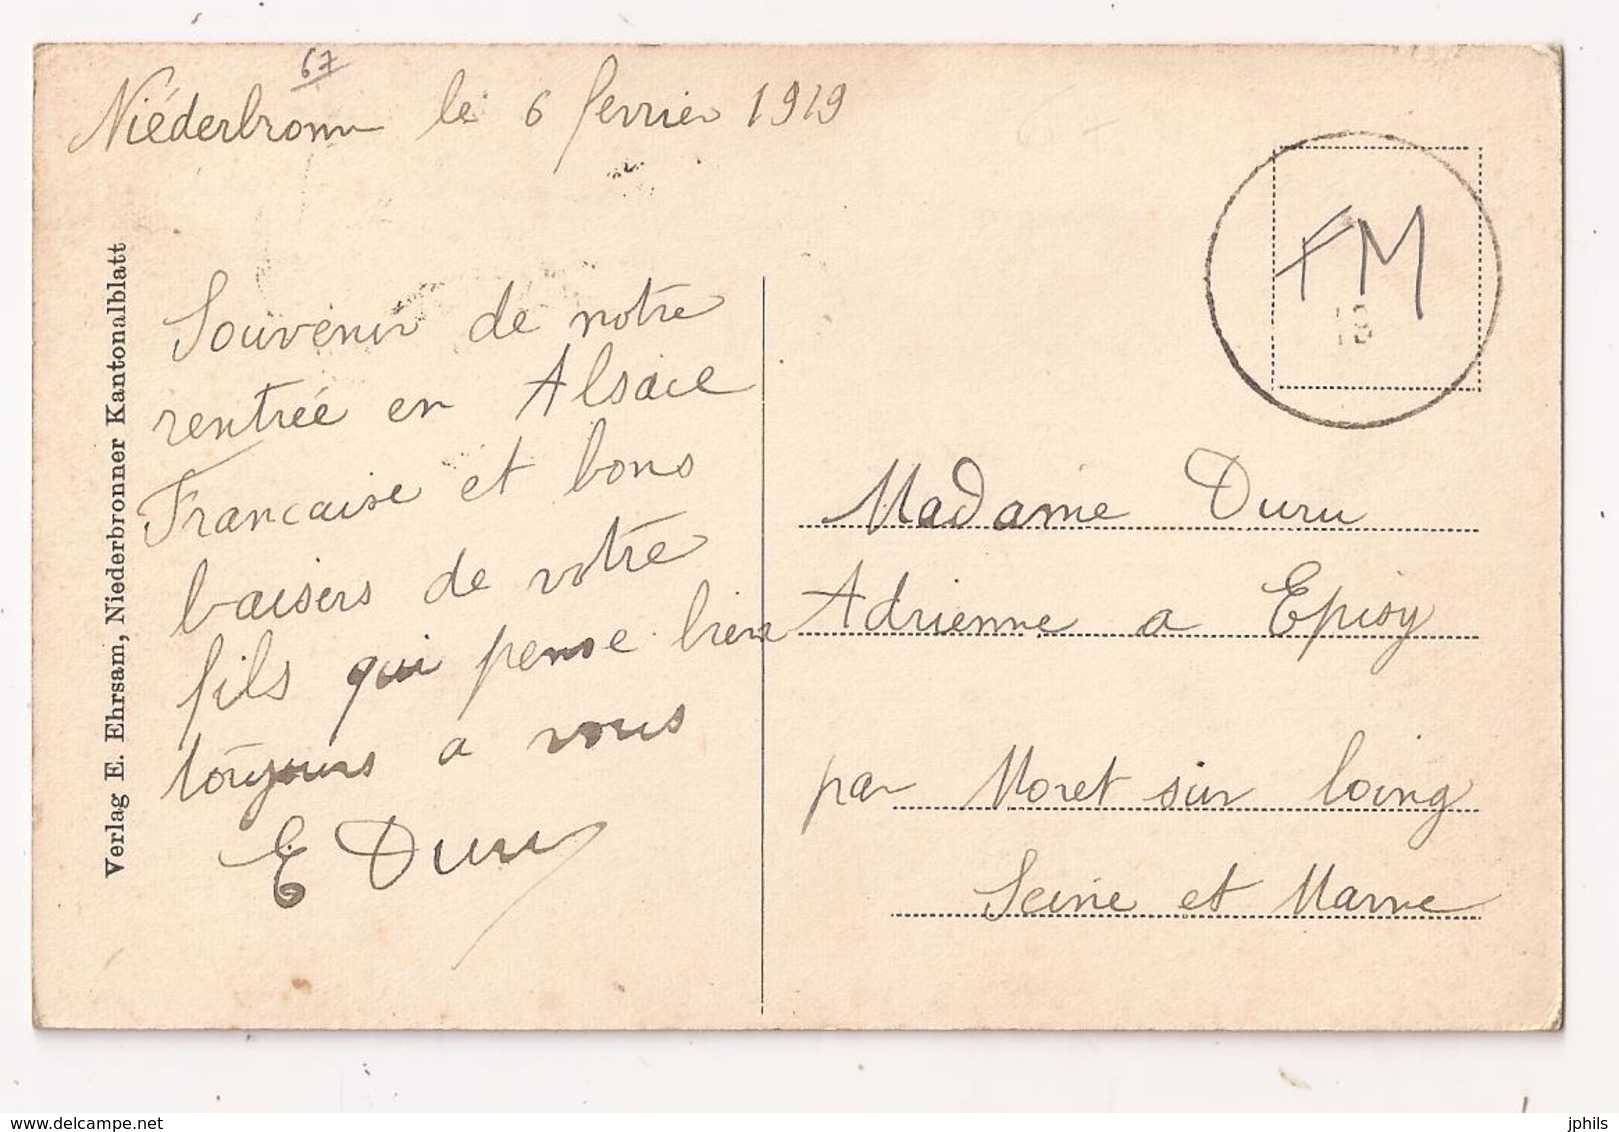 67
Niéderbronn le 6 fevrier 1919
Souvenir de notre
rentrée en Alsace
Francaise et bons
baisers de votre
fils qui pense bien
toujours a vous
E Duru
Verlag E. Ehrsam, Niederbronner Kantonalblatt
FM
Madame Duru
Adrienne a Episy
par Moret sur loing
Seine et Marne
delcampe.net
jphils